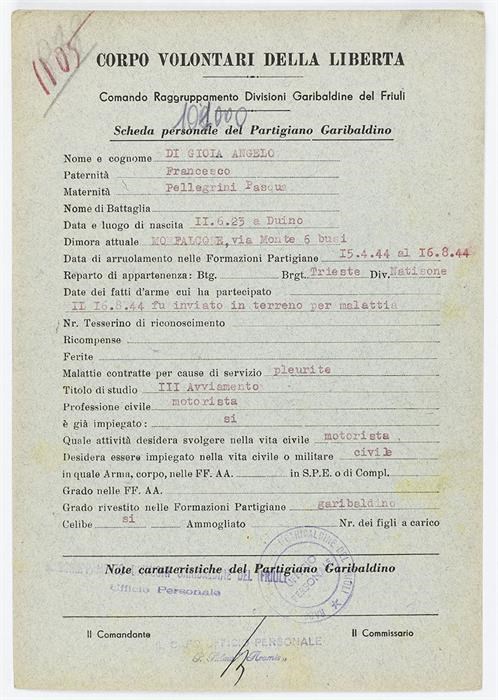 1105
CORPO VOLONTARI DELLA LIBERTA
Comando Raggruppamento Divisioni Garibaldine del Friuli
Scheda personale del Partigiano Garibaldino
Nome e cognome DI GIOIA ANGELO
Paternità Francesco
Maternità Pellegrini Pasqua
Nome di Battaglia
Data e luogo di nascita II.6.23 a Duino
Dimora attuale MONFALCONE, via Monte 6 busi
Data di arruolamento nelle Formazioni Partigiane I5.4.44 al I6.8.44
Reparto di appartenenza: Btg. Brgt. Trieste Div. Natisone
Date dei fatti d'arme cui ha partecipato
IL I6.8.44 fu inviato in terreno per malattia
Nr. Tesserino di riconoscimento
Ricompense
Ferite
Malattie contratte per cause di servizio pleurite
Titolo di studio III Avviamento
Professione civile motorista
è già impiegato: si
Quale attività desidera svolgere nella vita civile motorista
Desidera essere impiegato nella vita civile o militare civile
in quale Arma, corpo, nelle FF. AA. in S.P.E. o di Compl.
Grado nelle FF. AA.
Grado rivestito nelle Formazioni Partigiane garibaldino
Celibe si Ammogliato Nr. dei figli a carico
Note caratteristiche del Partigiano Garibaldino
GARIBALDINE DEL FRIULI
Ufficio Personale
UFFICIO PERSONALE
Il Comandante Il Commissario
IL CAPO UFFICIO PERSONALE